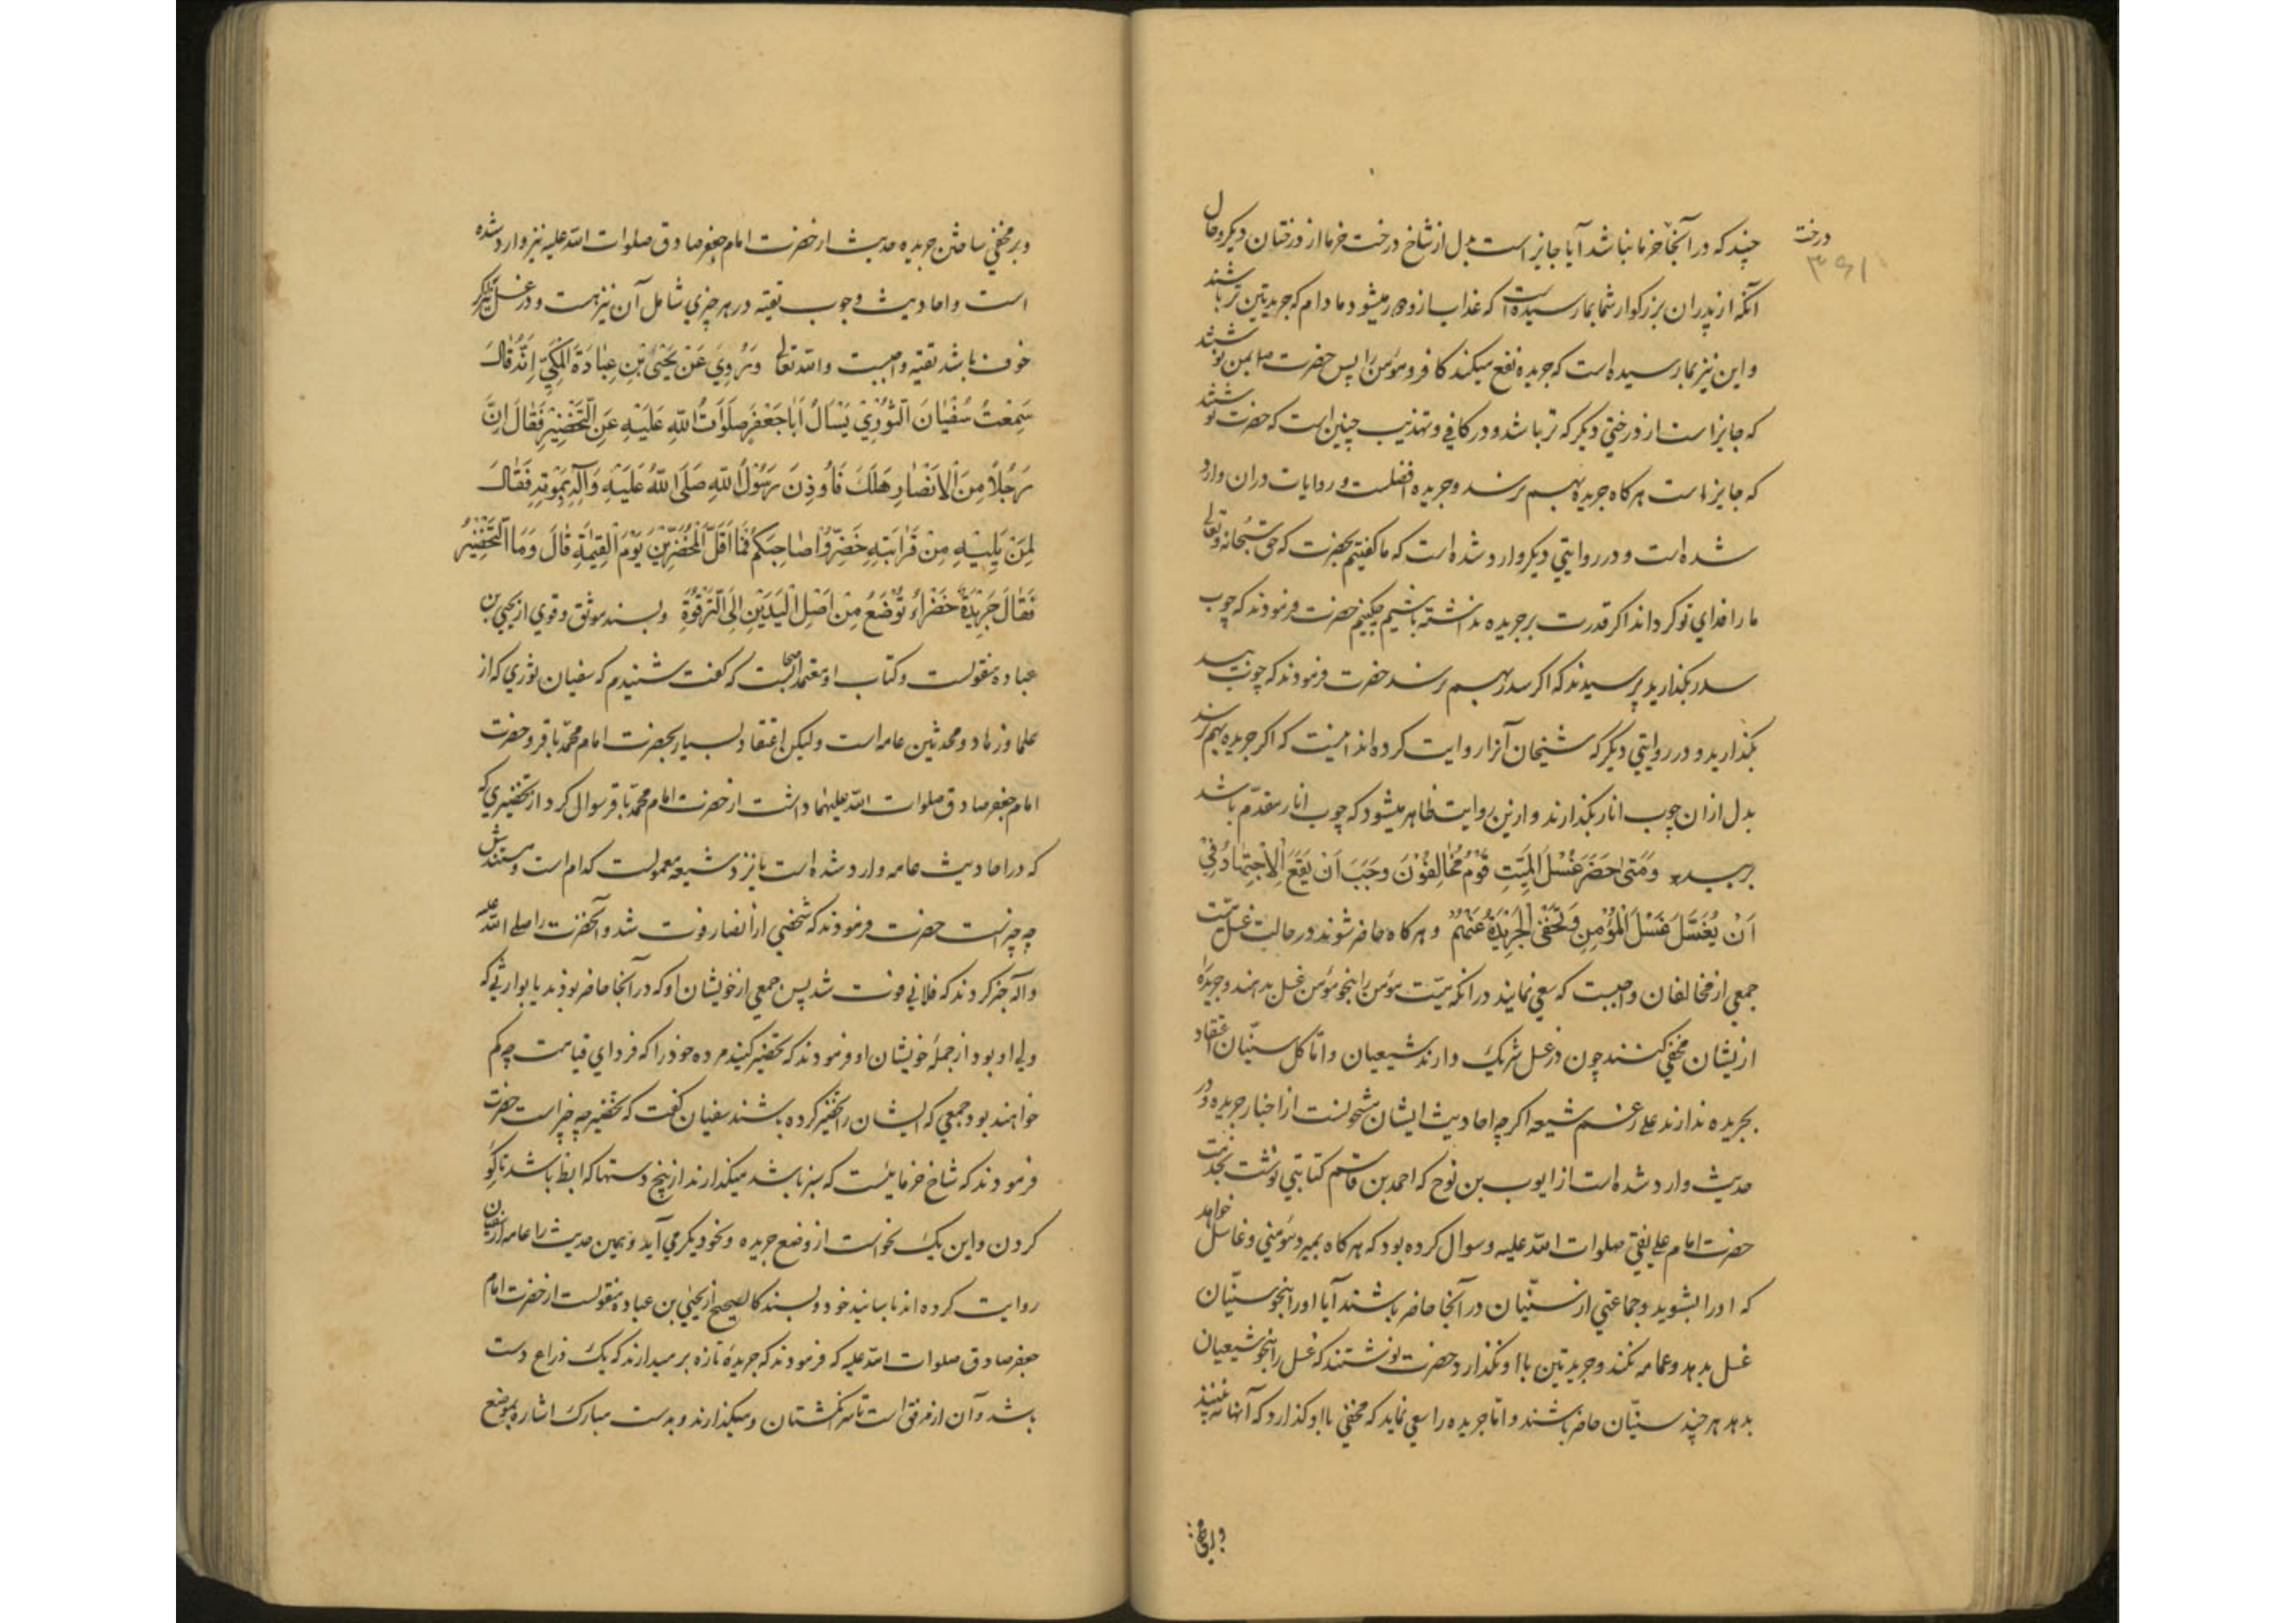 درخت
۳۹۱
چند که در آنجا خرما نباشد آیا جایز است بدل از شاخ درخت خرما از درختان دیکر و حال
آنکه از پدران بزرکوار شما بما رسیده است که عذاب ازو دور میشود مادام که جریدتین تر باشند
و این نیز بما رسیده است که جریده نفع میکند کافر و مؤمن را پس حضرت نوشتند
که جایز است از درختی دیکر که تر باشد و در کافی و تهذیب چنین است که حضرت نوشتند
که جایز است هرکاه جریده بهم نرسد و جریده افضلست و روایات دران وارد
شده است و در روایتی دیکر وارد شده است که ما کفتیم بحضرت که حق سبحانه و تعالی
ما را فدای تو کرداند اکر قدرت بر جریده نداشته باشیم چکنیم حضرت فرمودند که چوب
سدر بکذارید پرسیدند که اکر سدر بهم نرسد حضرت فرمودند که چوب بید
بکذارید و در روایتی دیکر که شیخان آنرا روایت کرده اند اینست که اکر جریده بهم نرسد
بدل ازان چوب انار بکذارند و ازین روایت ظاهر میشود که چوب انار مقدّم باشد
بر بید وَمَتىٰ حَضَرَ غُسْلَ الْمَيِّتِ قَوْمٌ مُخَالِفُوْنَ وَجَبَ اَنْ يَقَعَ الْاِجْتِهَادُ فِيْ
اَنْ يُغَسَّلَ غُسْلَ الْمُؤْمِنِ وَتُخْفَى الْجَرِيْدَةُ عَنْهُمْ و هرکاه حاضر شوند در حالت غسل میّت
جمعی از مخالفان واجبست که سعی نمایند در انکه میّت مؤمن را بنحو مؤمن غسل بدهند و جریده را
ازیشان مخفی کنند چون در غسل شریک دارند شیعیان و امّا کل سنّیان اعتقاد
بجریده ندارند علی رغم شیعه اکرچه احادیث ایشان مشحونست از اخبار جریده و در
حدیث وارد شده است از ایوب بن نوح که احمد بن قاسم کتابتی نوشت بخدمت
حضرت امام علی نقی صلوات الله علیه و سوال کرده بود که هرکاه بمیرد مؤمنی و غاسل خواهد
که اورا بشوید و جماعتی از سنّیان در آنجا حاضر باشند آیا اورا بنحو سنّیان
غسل بدهد و عمامه نکند و جریدتین با او نکذارد حضرت نوشتند که غسل را بنحو شیعیان
بدهد هرچند سنّیان حاضر باشند و امّا جریده را سعی نماید که مخفی با او کذارد که آنها نه بینند
و بر مخفی
و بر مخفی ساختن جریده حدیث از حضرت امام جعفر صادق صلوات الله علیه نیز وارد شده
است و احادیث وجوب تقیّه در هر چیزی شامل آن نیز هست و در غسل نیز اکر
خوف باشد تقیّه واجبست والله تعالی وَرُوِيَ عَنْ يَحْيَىٰ بْنِ عُبَادَةَ الْمَكِّيِّ اَنَّهُ قَالَ
سَمِعْتُ سُفْيَانَ الثَّوْرِيَّ يَسْاَلُ اَبَا جَعْفَرٍ صَلَوَاتُ اللّٰهِ عَلَيْهِ عَنِ التَّخْضِيْرِ فَقَالَ اِنَّ
رَجُلًا مِنَ الْاَنْصَارِ هَلَكَ فَاُوْذِنَ رَسُوْلُ اللّٰهِ صَلَّى اللّٰهُ عَلَيْهِ وَآلِهِ بِمَوْتِهِ فَقَالَ
لِمَنْ يَلِيْهِ مِنْ قَرَابَتِهِ خَضِّرُوْا صَاحِبَكُمْ فَمَا اَقَلَّ الْمُخَضَّرِيْنَ يَوْمَ الْقِيٰمَةِ قَالَ وَمَا التَّخْضِيْرُ
فَقَالَ جَرِيْدَةٌ خَضْرَاءُ تُوْضَعُ مِنْ اَصْلِ الْيَدَيْنِ اِلَى التَّرْقُوَةِ و بسند موثق و قوی از یحیی بن
عباده منقولست و کتاب او معتمد اصحابست که کفت شنیدم که سفیان ثوری که از
علما و زهاد و محدثین عامه است ولیکن اعتقاد بسیار بحضرت امام محمّد باقر و حضرت
امام جعفر صادق صلوات الله علیهما داشت از حضرت امام محمّد باقر سوال کرد از تخضیری که
که در احادیث عامه وارد شده است یا نزد شیعه معمولست کدام است و مستندش
چه چیز است حضرت فرمودند که شخصی از انصار فوت شد و آنحضرت را صلی الله علیه
وآله خبر کردند که فلانی فوت شد پس جمعی از خویشان او که در آنجا حاضر بودند یا بوارثی که
ولی او بود از جملهٔ خویشان او فرمودند که تخضیر کنید مرده خود را که فردای قیامت چه کم
خواهند بود جمعی که ایشان را تخضیر کرده باشند سفیان کفت که تخضیر چه چیز است حضرت
فرمودند که شاخ خرمائیست که سبز باشد میکذارند از بیخ دستها که ابط باشد تا کو
کردن و این یک نحو است از وضع جریده و نحو دیکر می آید و همین حدیث را عامه از سفیان
روایت کرده اند باسانید خود و بسند کالصحیح از یحیی بن عباده منقولست از حضرت امام
جعفر صادق صلوات الله علیه که فرمودند که جریدهٔ تازه بر میدارند که یک ذراع دست
باشد و آن از مرفق است تا سر انکشتان و میکذارند و بدست مبارک اشاره بموضع